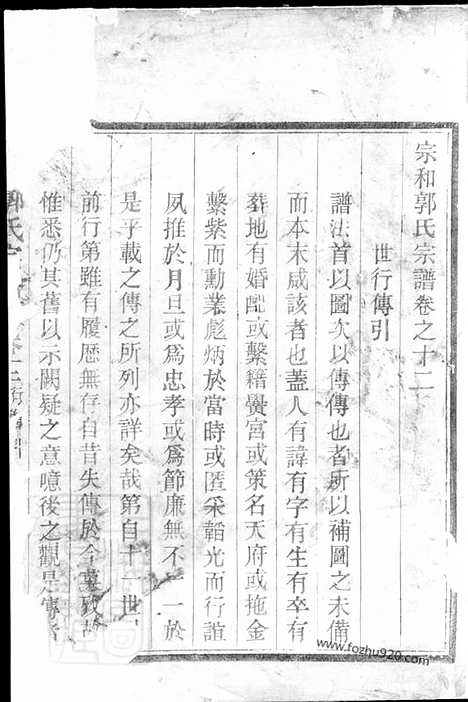 宗和郭氏宗譜卷之十二
世行傳引
譜法首以圖次以傳傳也者所以補圖之未備
而本末咸該者也蓋人有諱有字有生有卒有
葬地有婚配或繫籍黌宮或策名天府或拖金
繫紫而勳業彪炳於當時或匿采韜光而行誼
夙推於月旦或為忠孝或為節廉無不一一於
是乎載之傳之所列亦詳矣哉第自十一世
前行第雖有履歷無存自昔失傳於今莫致故
惟悉仍其舊以示闕疑之意噫後之觀是
郭氏宗
www.fozhu920.com